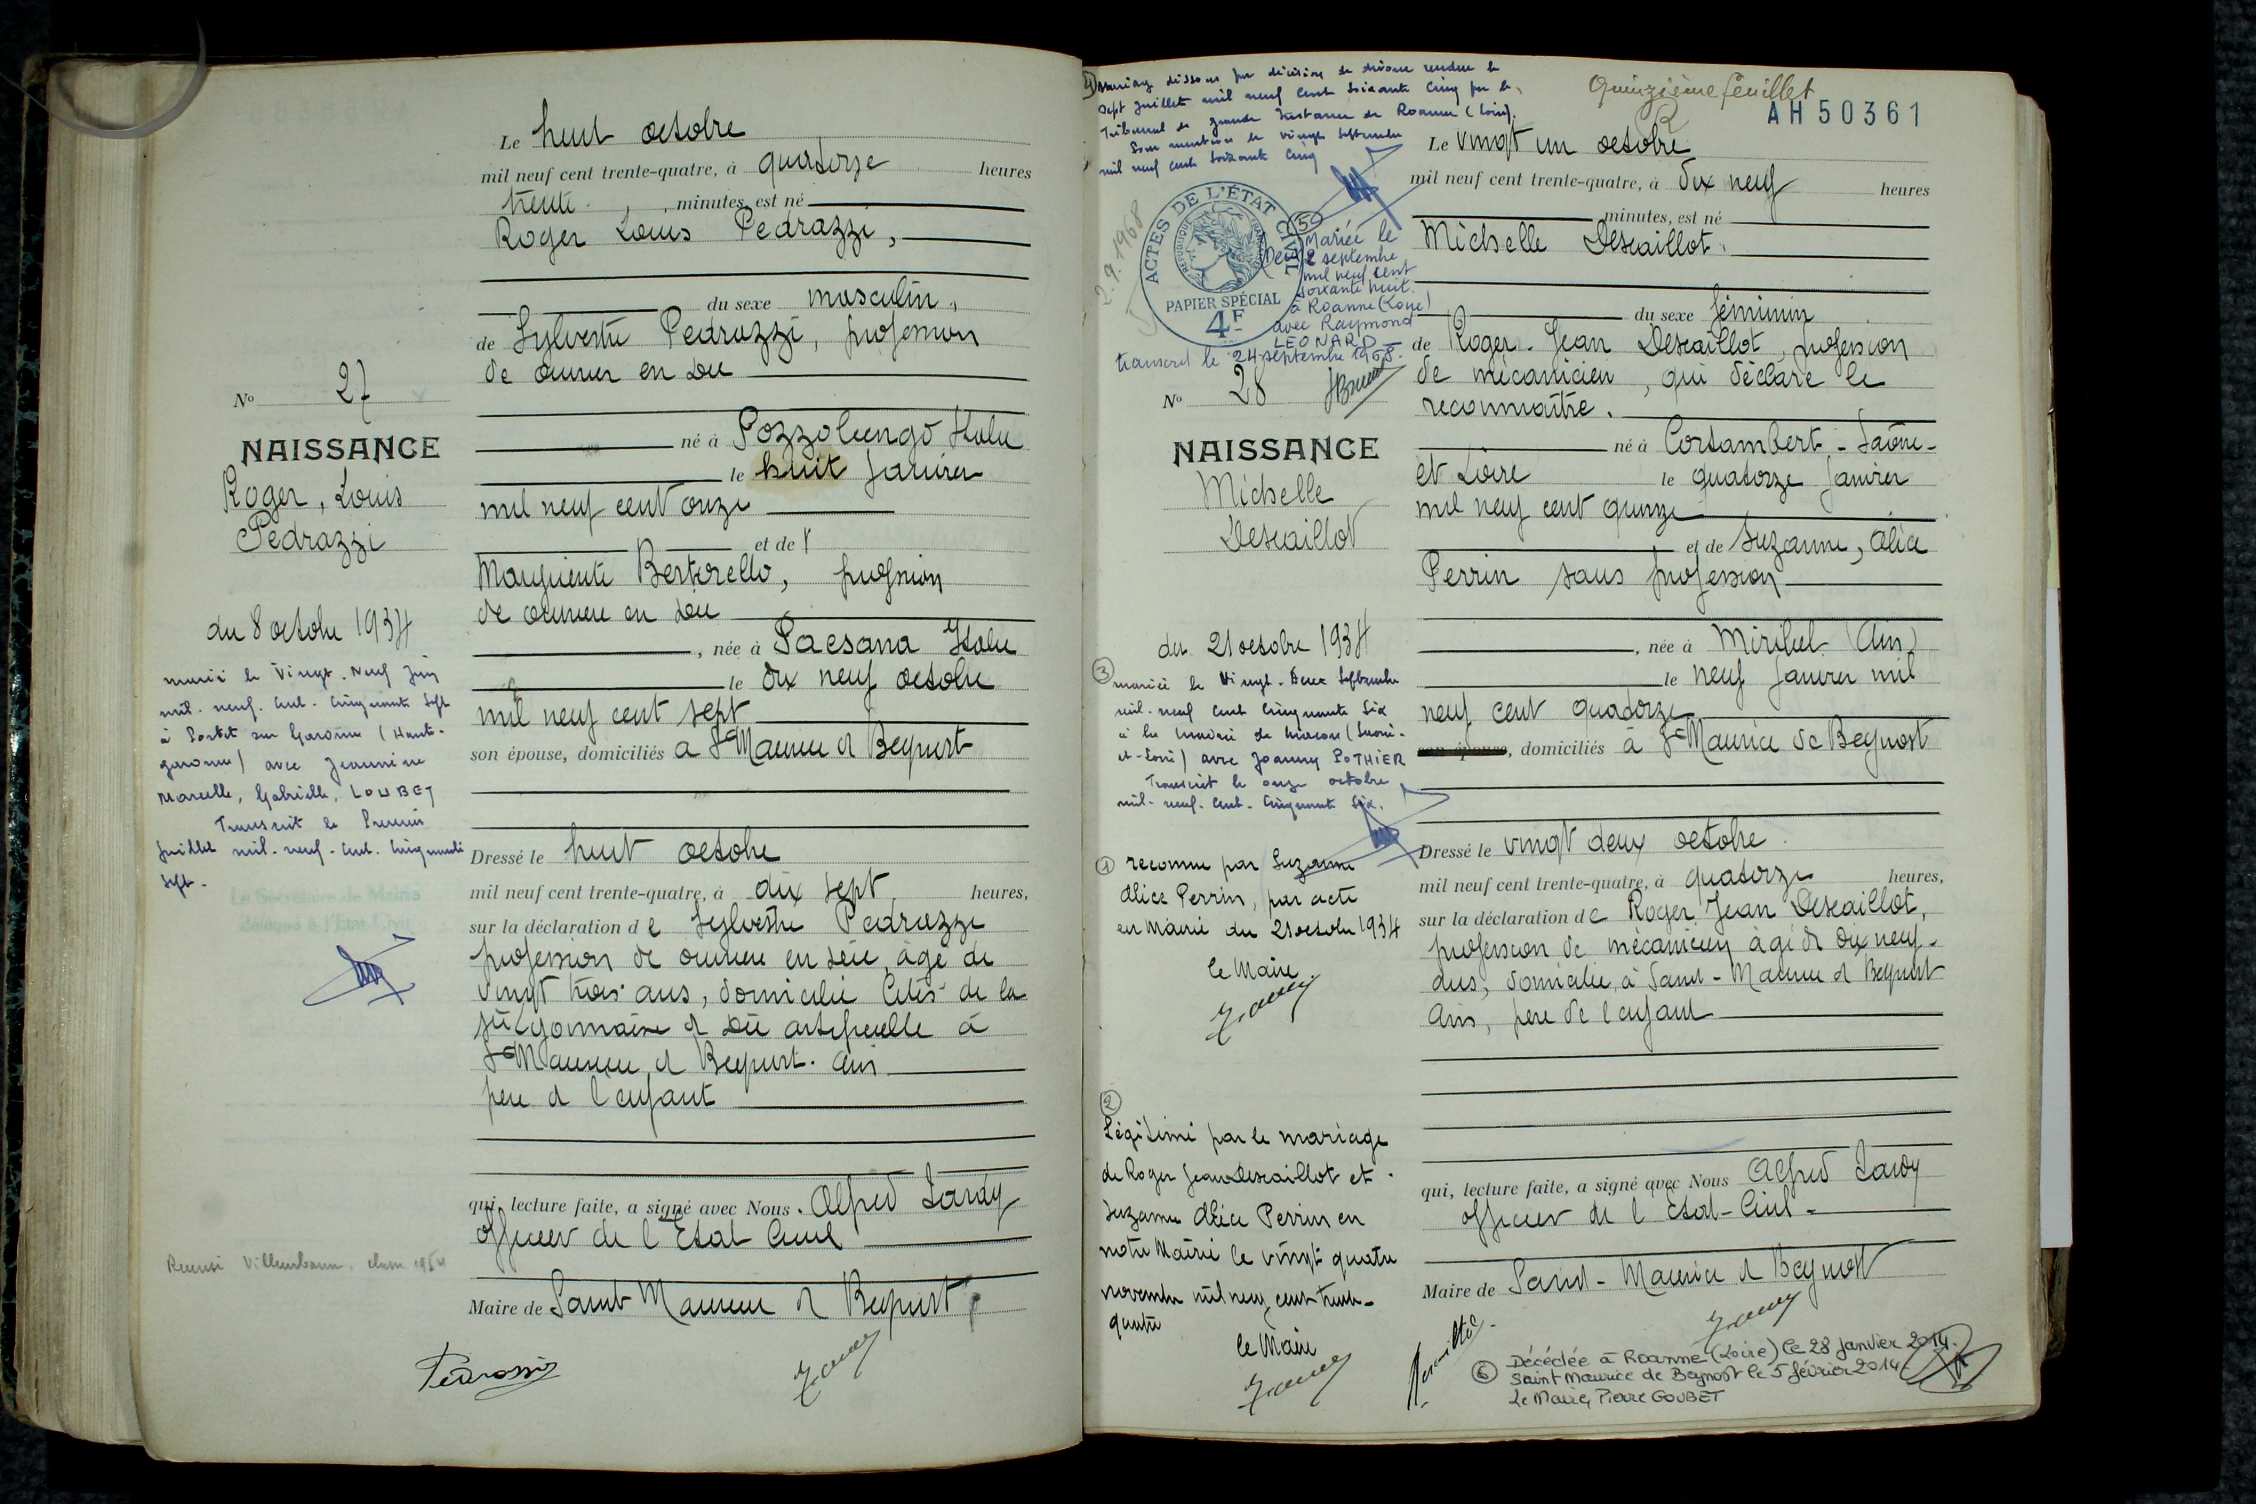 Le huit octobre
mil neuf cent trente-quatre, à quatorze heures
trente minutes, est né
Roger Louis Pedrazzi,
du sexe masculin,
de Sylvestre Pedrazzi, profession
de ouvrier en soie
né à Pozzolengo Italie
le huit janvier
mil neuf cent onze
et de
Marguerite Bertorello, profession
de ouvrière en soie
, née à Paesana Italie
le dix neuf octobre
mil neuf cent sept
son épouse, domiciliés à St Maurice de Beynost
Dressé le huit octobre
mil neuf cent trente-quatre, à dix sept heures,
sur la déclaration de Sylvestre Pedrazzi
profession de ouvrier en soie, âgé de
vingt trois ans, domicilié Cités de la
Sté Lyonnaise de Soie artificielle à
St Maurice de Beynost. Ain
père de l'enfant
qui, lecture faite, a signé avec Nous. Alfred Lardy
officier de l'Etat Civil
Maire de Saint Maurice de Beynost
No 27
NAISSANCE
Roger, Louis
Pedrazzi
du 8 octobre 1934
marié le Vingt-Neuf Juin
mil-neuf-cent-cinquante sept
à Portet sur Garonne (Haute-
garonne) avec Jeannine
Marcelle, Gabrielle, LOUBET
Transcrit le Premier
Juillet mil-neuf-cent-cinquante
sept.
Le Secrétaire de Mairie
délégué à l'Etat-Civil
Recensé Villeurbanne, classe 1954
Quinzième feuillet
AH50361
4 Mariage dissous par décision de divorce rendue le
sept juillet mil neuf cent soixante cinq par le
Tribunal de grande Instance de Roanne (Loire).
Sous mention le vingt septembre
mil neuf cent soixante cinq
2.9.1968
ACTES DE L'ÉTAT CIVIL
RÉPUBLIQUE FRANÇAISE
PAPIER SPÉCIAL
4F
5 Mariée le
Deux septembre
mil neuf cent
soixante huit
à Roanne (Loire)
avec Raymond
LEONARD
transcrit le 24 septembre 1968.
No 28
NAISSANCE
Michelle
Descaillot
du 21 octobre 1934
3 mariée le Vingt-Deux Septembre
mil-neuf cent cinquante six
à la mairie de Macon (Saône-
et-Loire) avec Joanny POTHIER
Transcrit le onze octobre
mil-neuf-cent-cinquante six.
1 reconnue par Suzanne
Alice Perrin, par acte
en Mairie du 21 octobre 1934
le Maire
2
Légitimée par le mariage
de Roger Jean Descaillot et
Suzanne Alice Perrin en
notre Mairie le vingt quatre
novembre mil neuf cent trente-
quatre
le Maire
Le vingt un octobre
mil neuf cent trente-quatre, à dix neuf heures
minutes, est né
Michelle Descaillot.
du sexe féminin
de Roger-Jean Descaillot, profession
de mécanicien, qui déclare le
reconnaître.
né à Cortambert - Saône-
et Loire le quatorze janvier
mil neuf cent quinze
et de Suzanne, Alice
Perrin sans profession
, née à Miribel (Ain)
le neuf janvier mil
neuf cent quatorze
son épouse, domiciliés à St Maurice de Beynost
Dressé le vingt deux octobre
mil neuf cent trente-quatre, à quatorze heures,
sur la déclaration de Roger Jean Descaillot,
profession de mécanicien âgé de dix neuf-
ans, domicilié à Saint-Maurice de Beynost
Ain, père de l'enfant
qui, lecture faite, a signé avec Nous Alfred Lardy
officier de l'Etat-Civil
Maire de Saint-Maurice de Beynost
6 Décédée à Roanne (Loire) le 28 janvier 2014.
Saint Maurice de Beynost le 5 février 2014
Le Maire, Pierre GOUBET